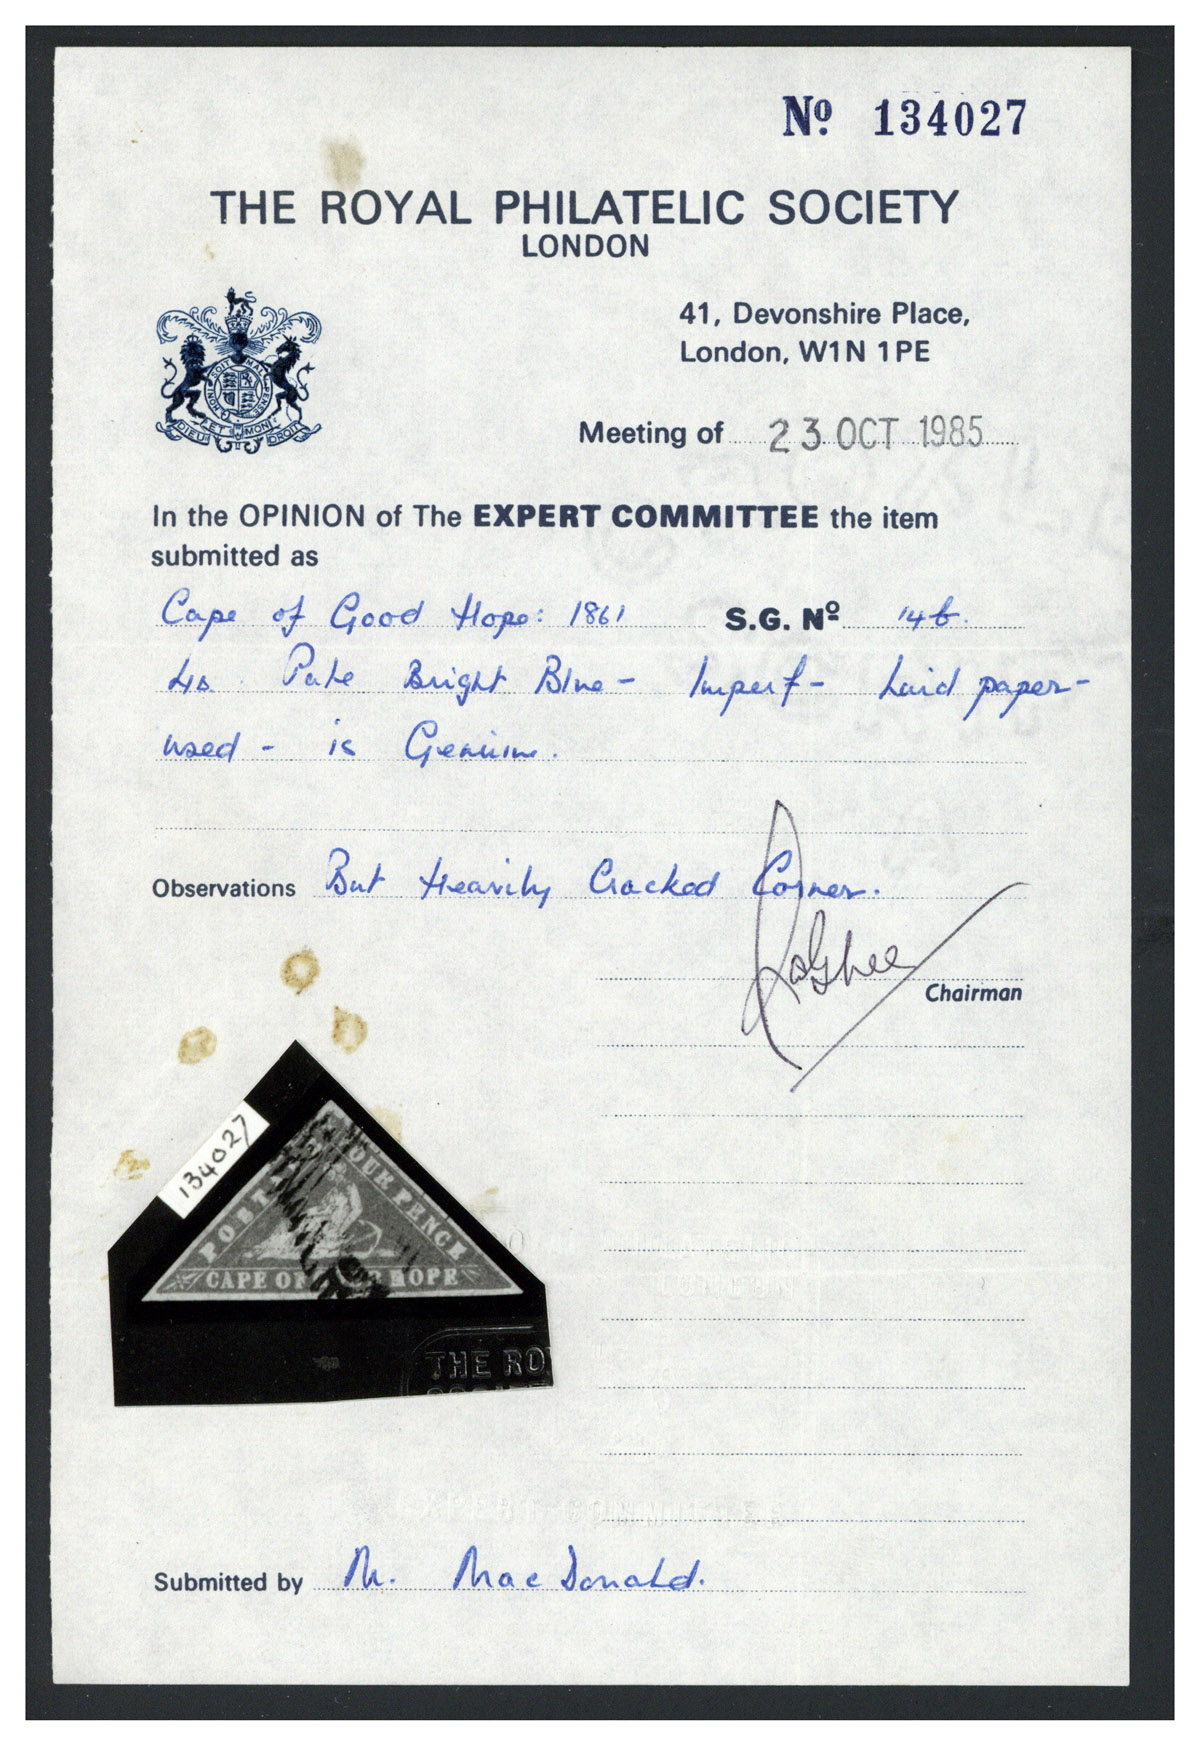 Nº 134027
THE ROYAL PHILATELIC SOCIETY
LONDON
41, Devonshire Place,
London, W1N 1PE
HONI SOIT QUI MAL Y PENSE
DIEU ET MON DROIT
Meeting of 23 OCT 1985
In the OPINION of The EXPERT COMMITTEE the item
submitted as
Cape of Good Hope: 1861 S.G. Nº 14b.
4d. Pale Bright Blue - Imperf - Laid paper -
used - is Genuine.
Observations But Heavily Cracked Corner.
Chairman
134027
POSTAGE FOUR PENCE
CAPE OF HOPE
THE RO
LONDON
EXPERT COMMITTEE
Submitted by M. MacDonald.